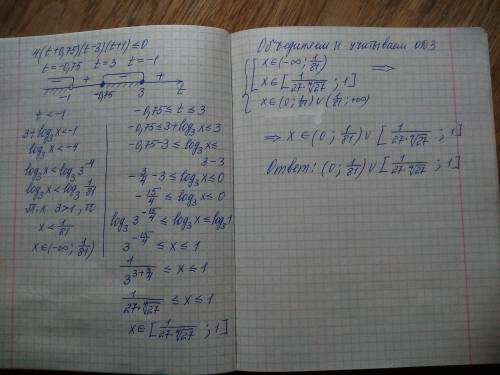 4(t+0,75)(t-3)(t+1)≤0
t=-0,75 t=3 t=-1
- + - +
-1 -0,75 3 t
t < -1
3+log₃x<-1
log₃x<-4
log₃x<log₃3⁻⁴
log₃x<log₃ 1/81
т.к. 3>1, то
x < 1/81
x∈(-∞; 1/81)
-0,75 ≤ t ≤ 3
-0,75≤3+log₃x ≤ 3
-0,75-3 ≤ log₃x ≤
3-3
-3/4 -3 ≤ log₃x ≤0
-15/4 ≤ log₃x ≤0
log₃3^(-15/4) ≤ log₃x ≤ log₃1
3^(-15/4) ≤ x ≤ 1
1/3^(3+3/4) ≤ x ≤ 1
1/(27·⁴√27) ≤ x ≤ 1
x∈[1/(27·⁴√27) ; 1]
Объединяем и учитываем ОДЗ
x∈(-∞; 1/81)
x∈[1/(27·⁴√27) ; 1] ⇒
x∈(0; 1/81)∪(1/81; +∞)
⇒ x∈(0; 1/81)∪[1/(27·⁴√27) ; 1]
Ответ: (0; 1/81)∪[1/(27·⁴√27) ; 1]